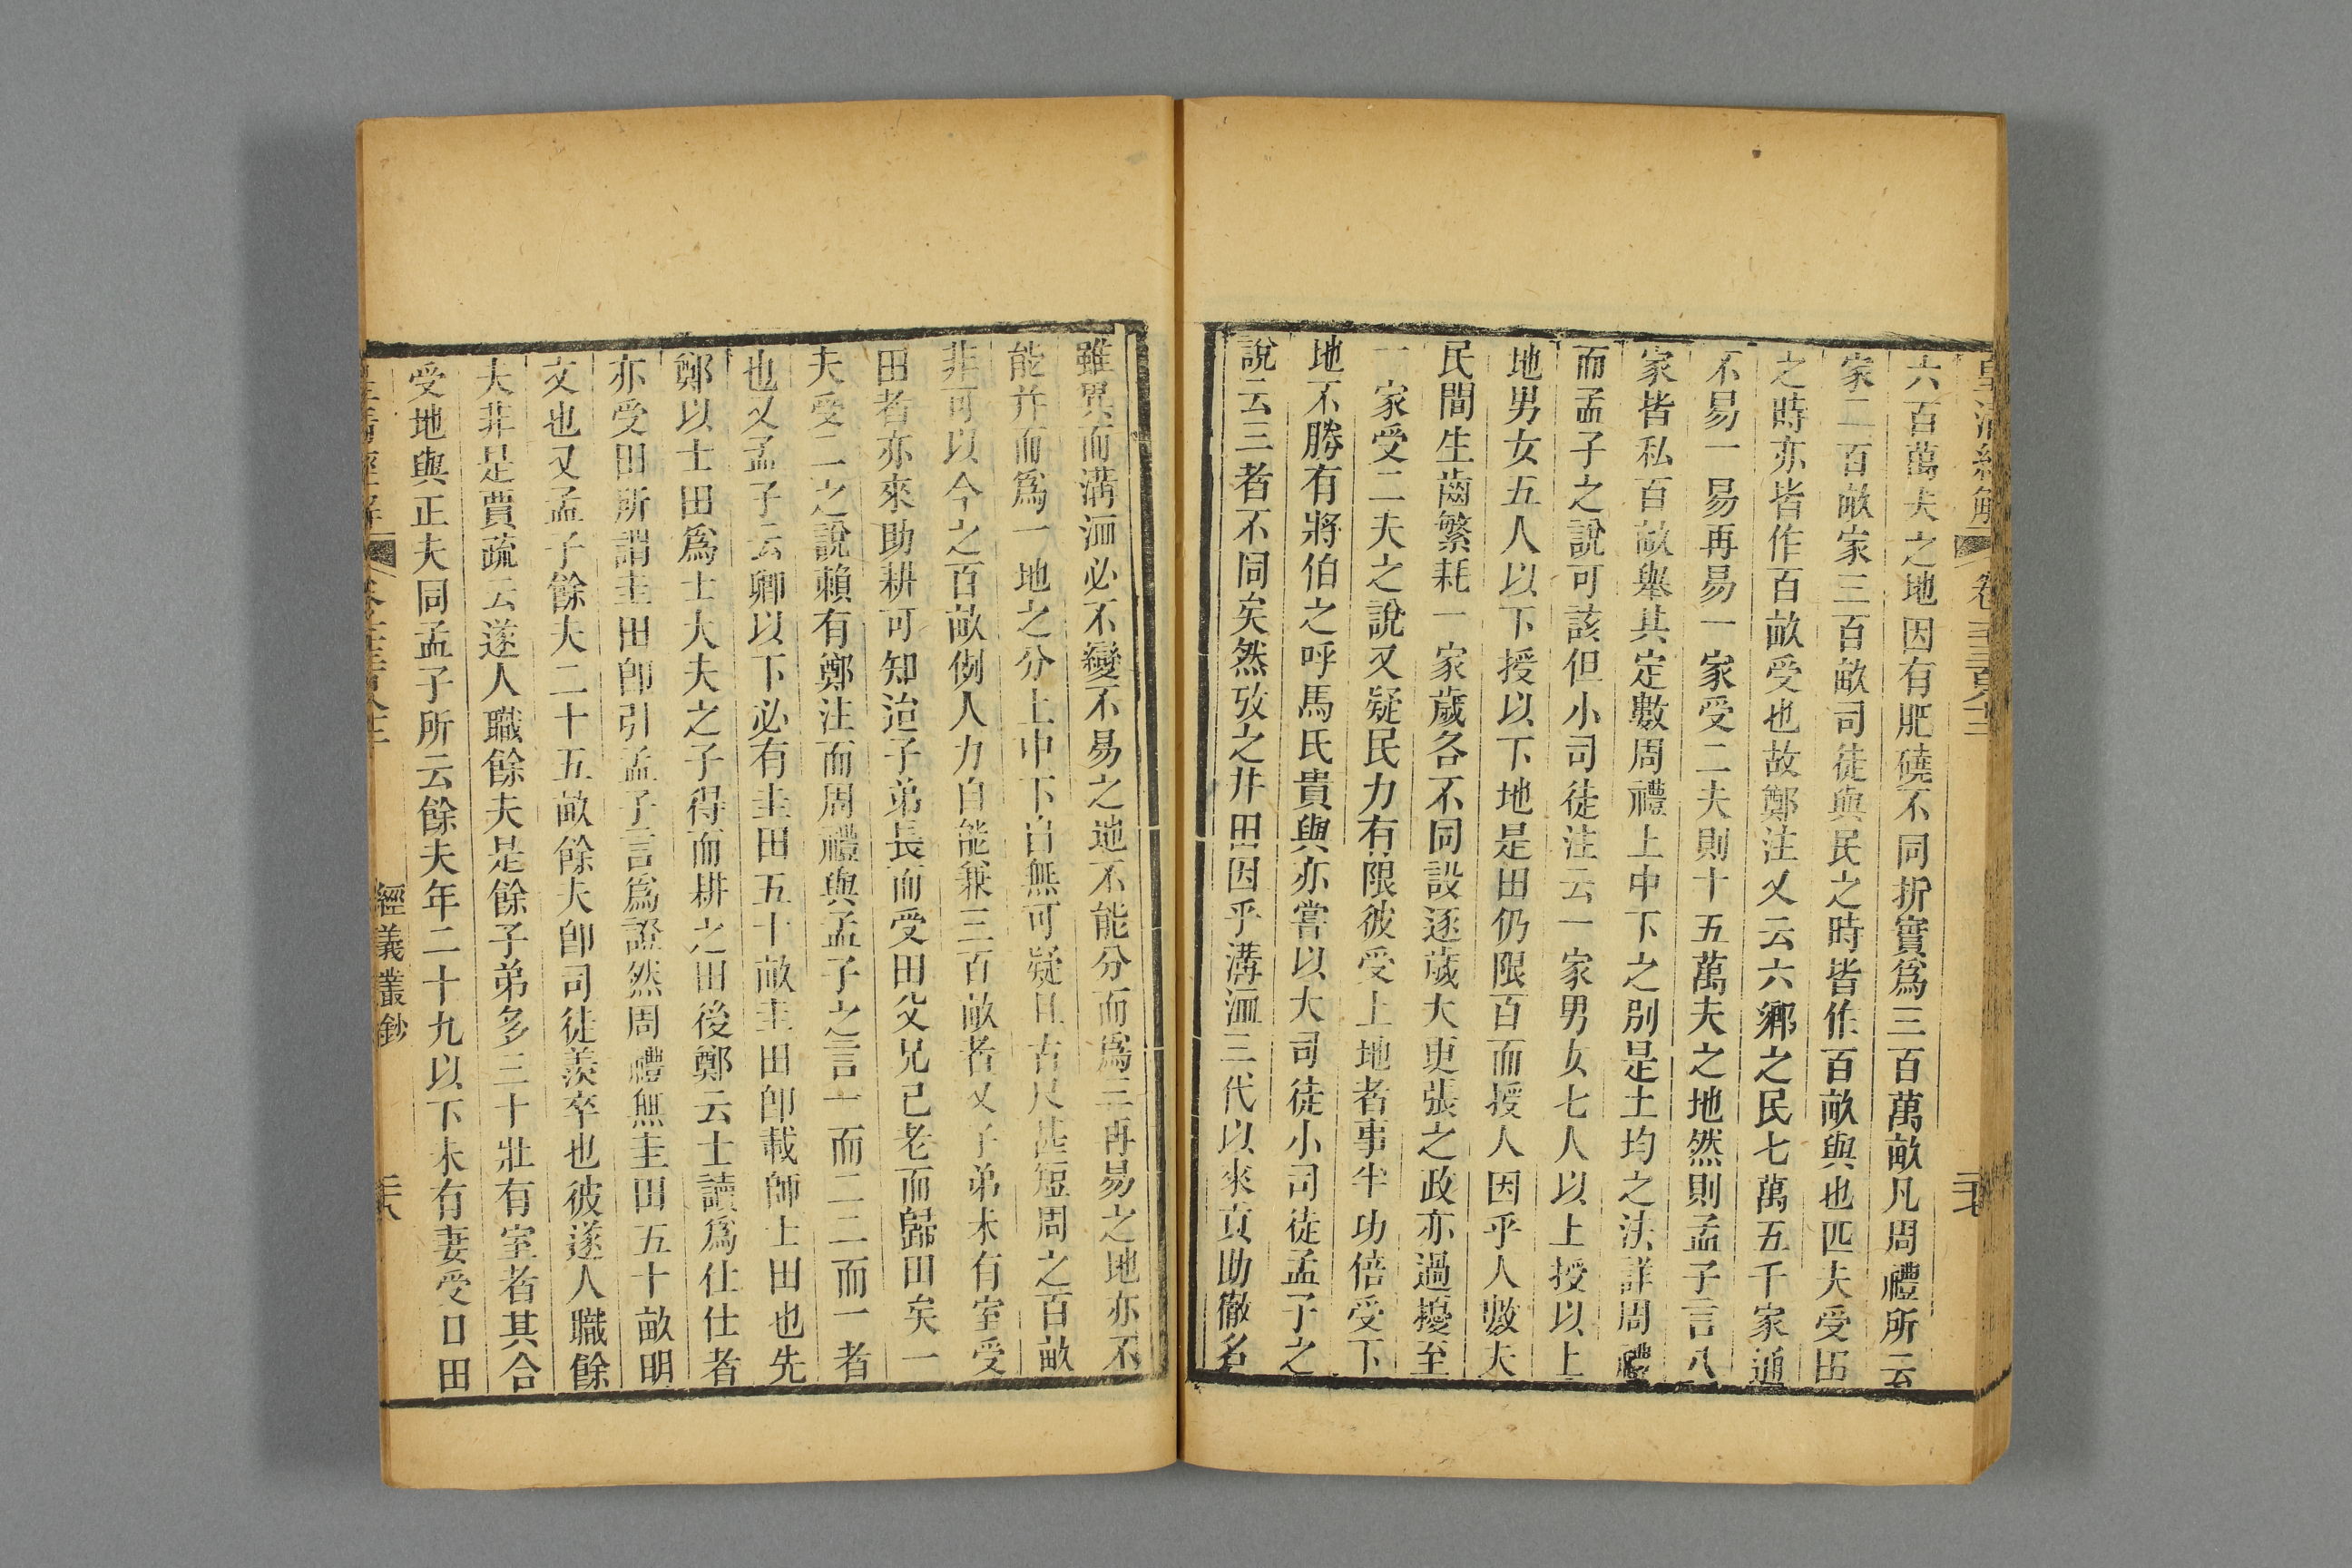 皇清經解 卷 二十七
六百萬夫之地因有肥磽不同折實爲三百萬畝凡周禮所云
家二百畝家三百畝司徒與民之時皆作百畝與也匹夫受田
之時亦皆作百畝受也故鄭注又云六鄉之民七萬五千家通
不易一易再易一家受二夫則十五萬夫之地然則孟子言八
家皆私百畝舉其定數周禮上中下之別是土均之法詳周禮
而孟子之說可該但小司徒注云一家男女七人以上授以上
地男女五人以下授以下地是田仍限百而授人因乎人數夫
民間生齒繁耗一家歲各不同設逐歲大更張之政亦過擾至
一家受二夫之說又疑民力有限彼受上地者事半功倍受下
地不勝有將伯之呼馬氏貴與亦嘗以大司徒小司徒孟子之
說云三者不同矣然攷之井田因乎溝洫三代以來貢助徹名
雖異而溝洫必不變不易之地不能分而爲三再易之地亦不
能并而爲一地之分上中下自無可疑且古尺甚短周之百畝
非可以今之百畝例人力自能兼三百畝者又子弟未有室受
田者亦來助耕可知迨子弟長而受田父兄已老而歸田矣一
夫受二之說賴有鄭注而周禮與孟子之言一而二二而一者
也又孟子云卿以下必有圭田五十畝圭田卽載師士田也先
鄭以士田爲士大夫之子得而耕之田後鄭云士讀爲仕仕者
亦受田所謂圭田卽引孟子言爲證然周禮無圭田五十畝明
文也又孟子餘夫二十五畝餘夫卽司徒羨卒也彼遂人職餘
夫非是賈疏云遂人職餘夫是餘子弟多三十壯有室者其合
受地與正夫同孟子所云餘夫年二十九以下未有妻受口田
皇清經解 經義叢鈔 二十八